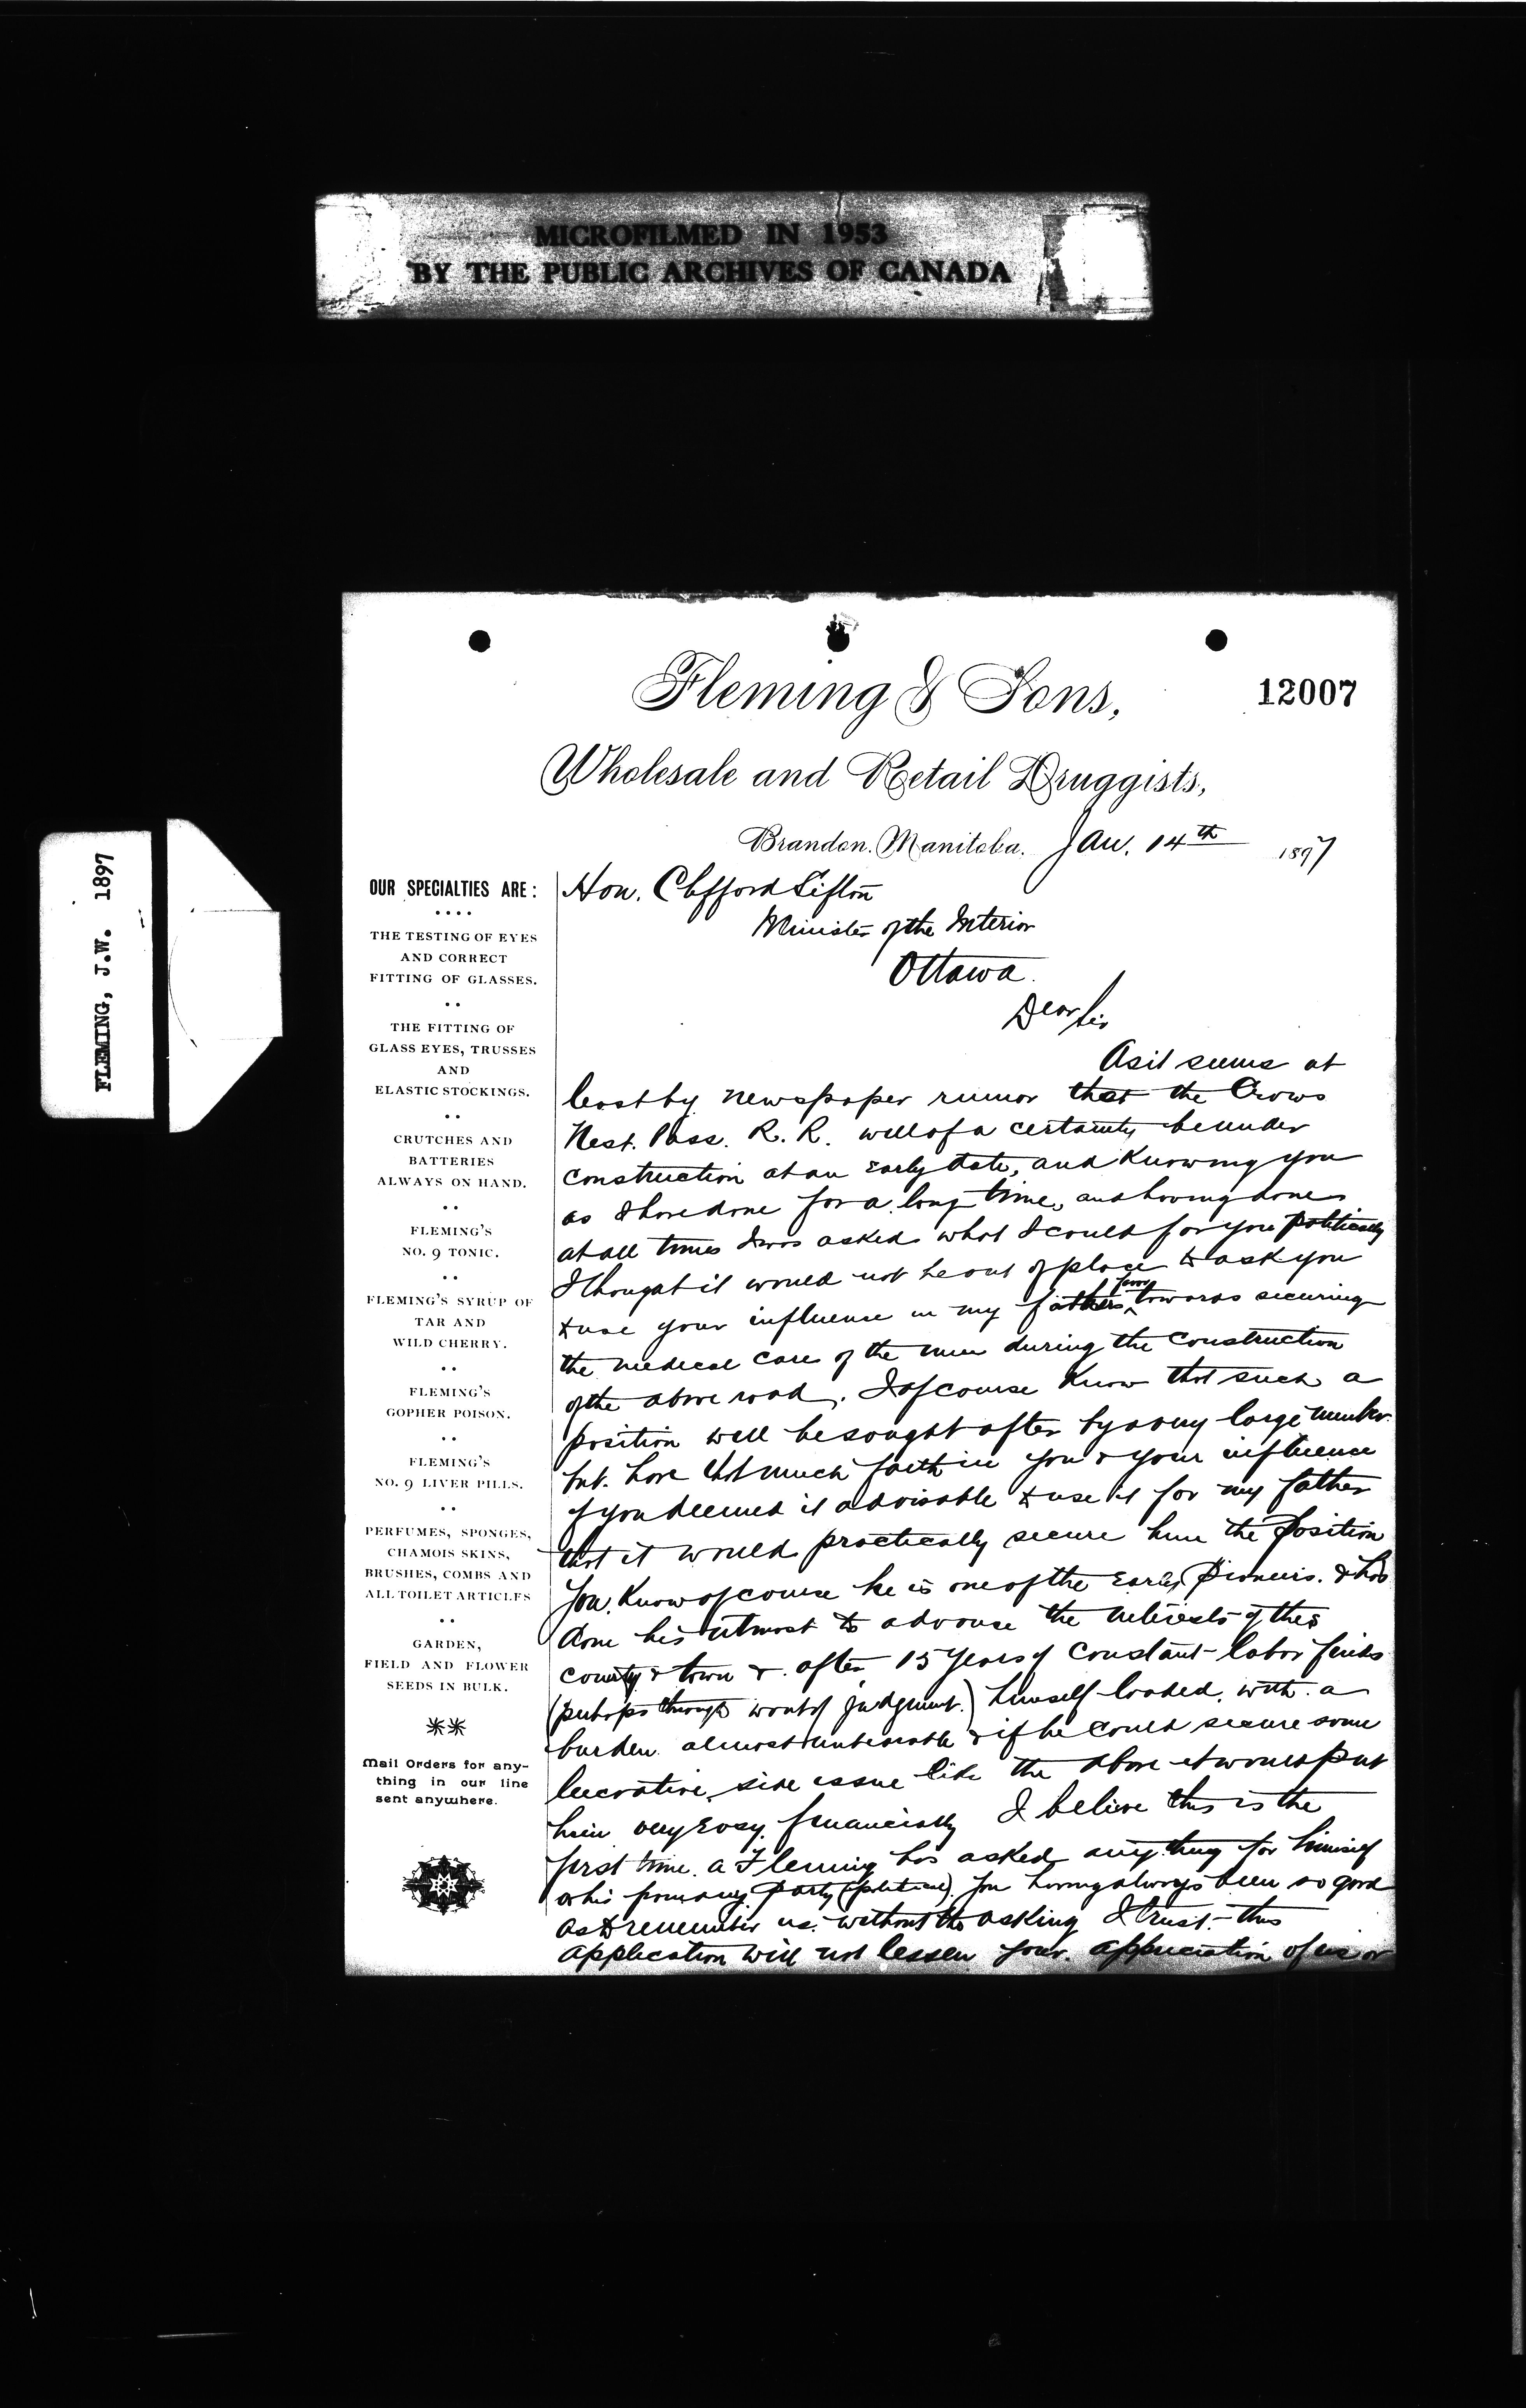 MICROFILMED IN 1953
BY THE PUBLIC ARCHIVES OF CANADA
FLEMING, J.W. 1897
Fleming & Sons,
12007
Wholesale and Retail Druggists,
Brandon, Manitoba. Jan. 14th 1897
OUR SPECIALTIES ARE:
THE TESTING OF EYES
AND CORRECT
FITTING OF GLASSES.
THE FITTING OF
GLASS EYES, TRUSSES
AND
ELASTIC STOCKINGS.
CRUTCHES AND
BATTERIES
ALWAYS ON HAND.
FLEMING'S
NO. 9 TONIC.
FLEMING'S SYRUP OF
TAR AND
WILD CHERRY.
FLEMING'S
GOPHER POISON.
FLEMING'S
NO. 9 LIVER PILLS.
PERFUMES, SPONGES,
CHAMOIS SKINS,
BRUSHES, COMBS AND
ALL TOILET ARTICLES
GARDEN,
FIELD AND FLOWER
SEEDS IN BULK.
Mail Orders for any-
thing in our line
sent anywhere.
Hon. Clifford Sifton
Minister of the Interior
Ottawa.
Dear Sir
As it seems at
least by newspaper rumor that the Crows
Nest. Pass. R. R. will of a certainty be under
construction at an early date, and knowing you
as I have done for a long time, and having done
at all times I was asked what I could for you politically
I thought it would not be out of place to ask you
to use your influence in my fathers favor towards securing
the medical care of the men during the construction
of the above road. I of course know that such a
position will be sought after by a very large number
but have that much faith in you & your influence
if you deemed it advisable to use it for my father
that it would practically secure him the position
You know of course he is one of the early Pioneers. & has
done his utmost to advance the interests of this
county & town & after 15 years of constant labor finds
(perhaps through want of judgment.) himself loaded with a
burden almost unbearable & if he could secure some
lucrative side issue like the above it would put
him very easy financially I believe this is the
first time a Fleming has asked anything for himself
or his party (political) you having always been so good
as to remember us without the asking I trust this
application will not lessen your appreciation of us or